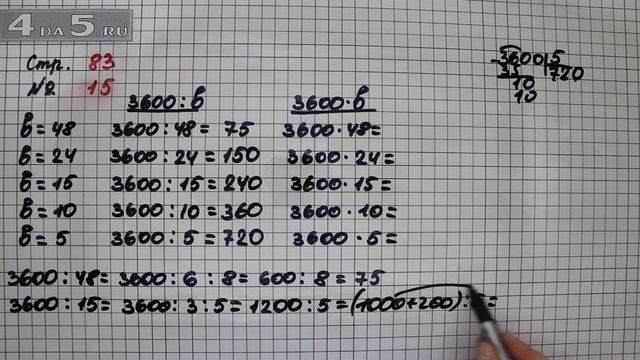 4DA5.RU
Стр. 83
№ 15
3600:в 3600·в
в=48 3600:48=75 3600·48=
в=24 3600:24=150 3600·24=
в=15 3600:15=240 3600·15=
в=10 3600:10=360 3600·10=
в=5 3600:5=720 3600·5=
3600:48=3600:6:8=600:8=75
3600:15=3600:3:5=1200:5=(1000+200): =
-3600|5
35 720
10
10